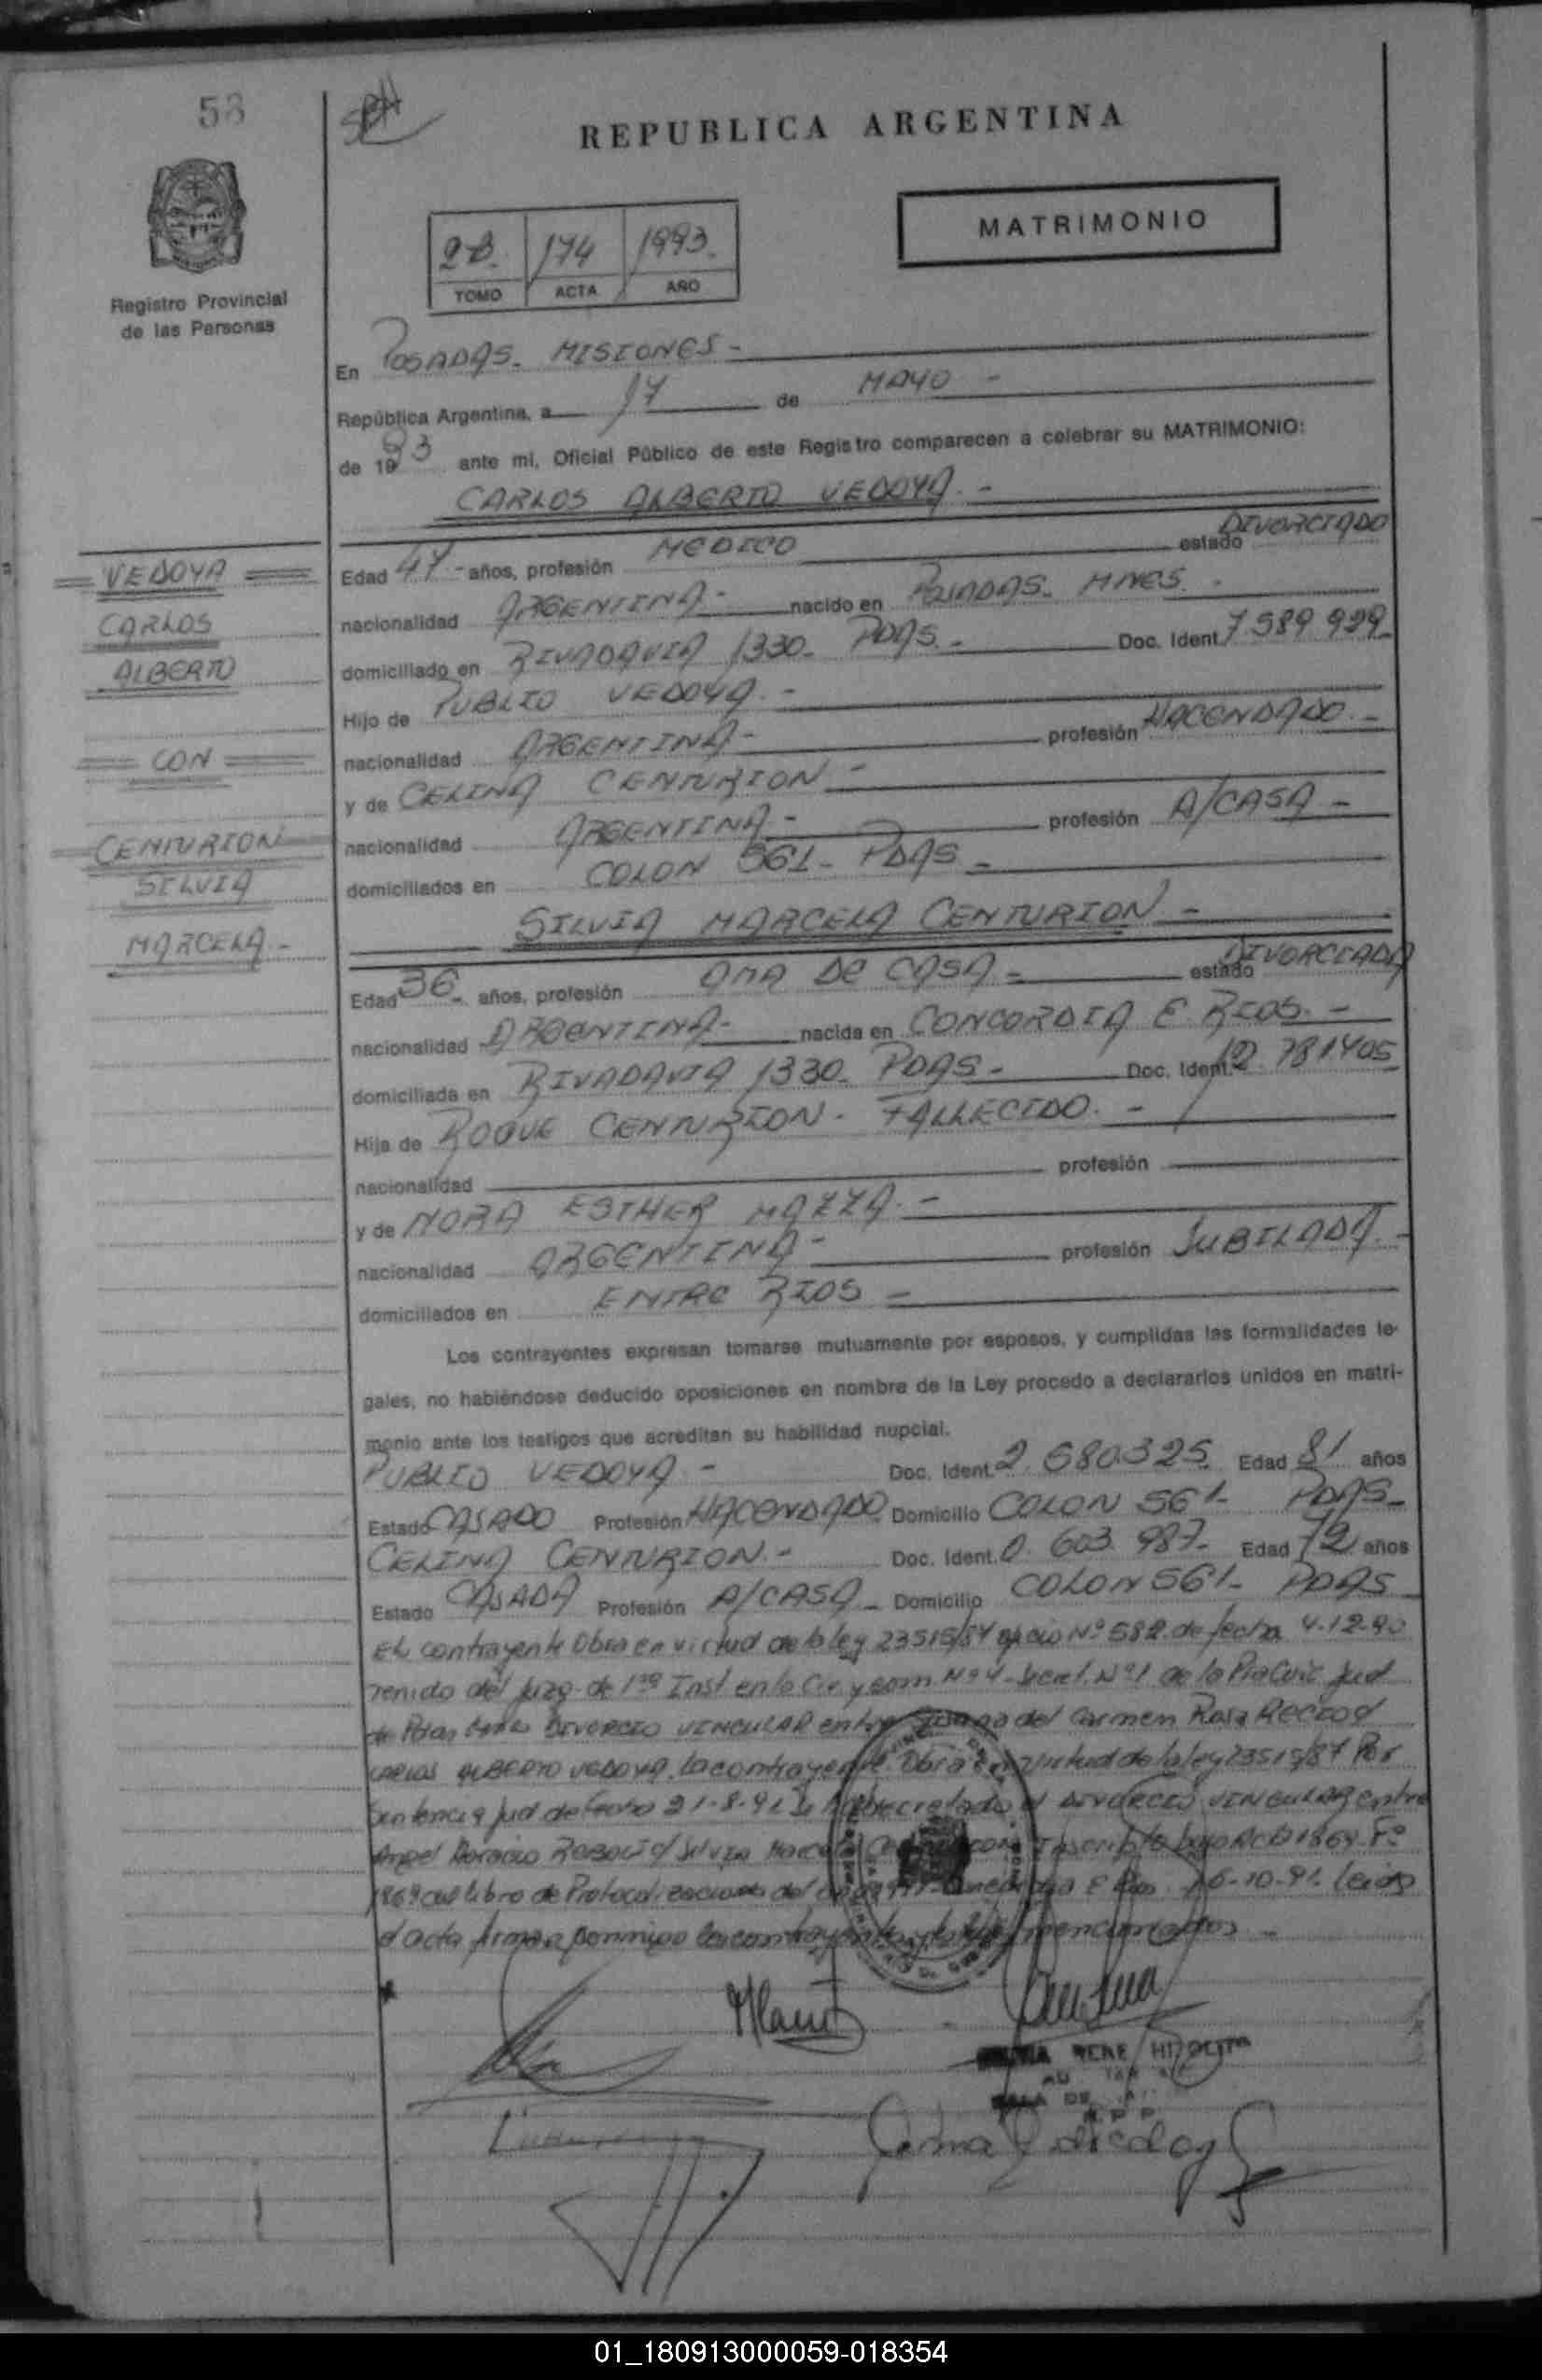 53
REPUBLICA ARGENTINA
MATRIMONIO
2-B. 174 1993.
TOMO ACTA AÑO
Registro Provincial
de las Personas
En POSADAS. MISIONES-
República Argentina, a 17 de MAYO -
de 1993 ante mi, Oficial Público de este Registro comparecen a celebrar su MATRIMONIO:
CARLOS ALBERTO VEDOYA. -
VEDOYA
CARLOS
ALBERTO
CON
CENTURION
SILVIA
MARCELA-
Edad 47- años, profesión MEDICO estado DIVORCIADO
nacionalidad ARGENTINA- nacido en POSADAS. MNES.
domiciliado en RIVADAVIA 1330- PDAS.- Doc. Ident. 7.589 929
Hijo de PUBLIO VEDOYA. -
nacionalidad ARGENTINA- profesión HACENDADO. -
y de CELINA CENTURION -
nacionalidad ARGENTINA- profesión A/CASA -
domiciliados en COLON 561- PDAS -
SILVIA MARCELA CENTURION -
Edad 36- años, profesión AMA DE CASA - estado DIVORCIADA
nacionalidad ARGENTINA- nacida en CONCORDIA E. RIOS. -
domiciliada en RIVADAVIA 1330- PDAS - Doc. Ident. 12.781405
Hija de ROQUE CENTURION - FALLECIDO. -
nacionalidad profesión
y de NORA ESTHER MAZZA. -
nacionalidad ARGENTINA- profesión JUBILADA. -
domiciliados en ENTRE RIOS -
Los contrayentes expresan tomarse mutuamente por esposos, y cumplidas las formalidades le-
gales, no habiéndose deducido oposiciones en nombre de la Ley procedo a declararlos unidos en matri-
monio ante los testigos que acreditan su habilidad nupcial.
PUBLIO VEDOYA - Doc. Ident. 2.680.325 Edad 81 años
Estado CASADO Profesión HACENDADO Domicilio COLON 561- PDAS-
CELINA CENTURION.- Doc. Ident. 0.603.987- Edad 72 años
Estado CASADA Profesión A/CASA- Domicilio COLON 561- PDAS
El contrayente Obra en virtud de la ley 23515/87 oficio Nº 582 de fecha 4-12-90
del Juzg. de 1ra Inst en lo Civ. y Com. Nº 4 - Secret. Nº 1 de la Circ. Jud
de Pdas DIVORCIO VINCULAR entre del Carmen Rosa
CARLOS ALBERTO VEDOYA. la contrayente. Obra en virtud de la ley 23515/87 Por
Sentencia Jud de fecha 21-8-91 decretado el DIVORCIO VINCULAR entre
Angel Horacio Silvia Marcela Inscripto bajo Acta 1869 Fº
1869 del libro de Protocolizaciones del E. Rios. 16-10-91. Leida
el acta firman conmigo los contrayentes y mencionados -
RENE HIPOLITO
SALA DE
R.P.P.
01_180913000059-018354